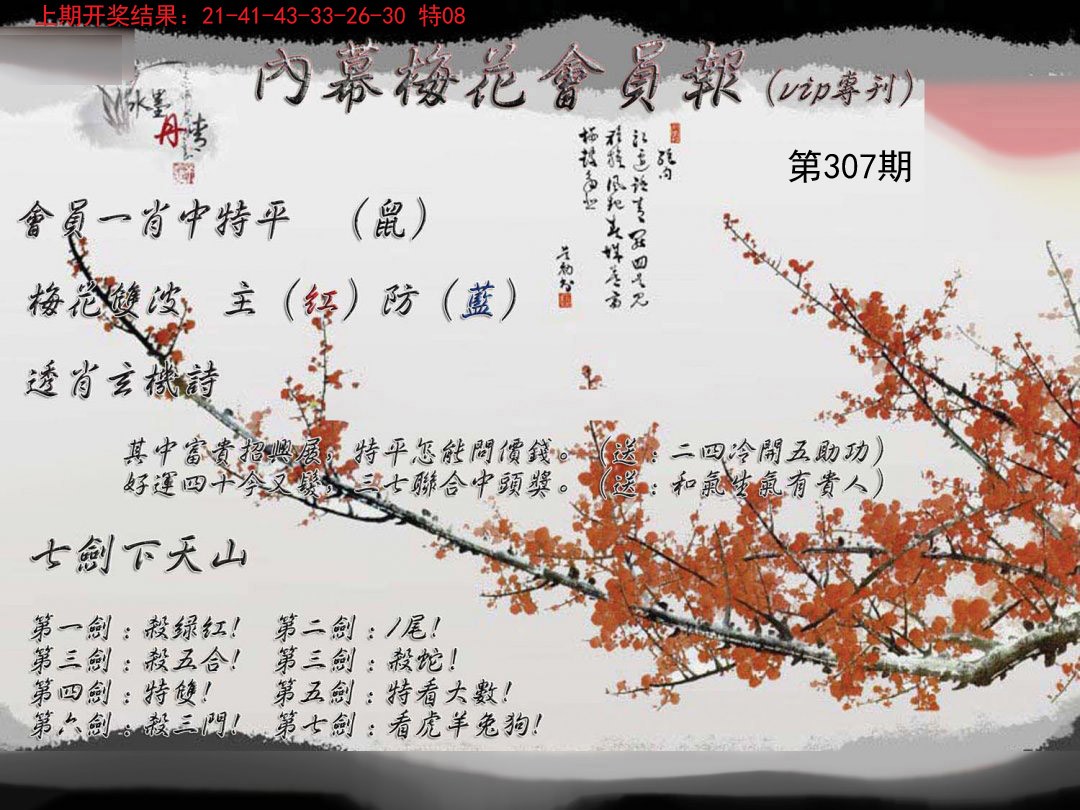 上期开奖结果：21-41-43-33-26-30 特08
內幕梅花會員報（vip專刊）
水墨
丹青
第307期
會員一肖中特平 （鼠）
梅花雙波 主（紅）防（藍）
透肖玄機詩
其中富貴招興展，特平怎能問價錢。（送：二四冷開五助功）
好運四十今又發，三七聯合中頭獎。（送：和氣生氣有貴人）
七劍下天山
第一劍：殺绿红! 第二劍：1尾!
第三劍：殺五合! 第三劍：殺蛇!
第四劍：特雙! 第五劍：特看大數!
第六劍：殺三門! 第七劍：看虎羊兔狗!